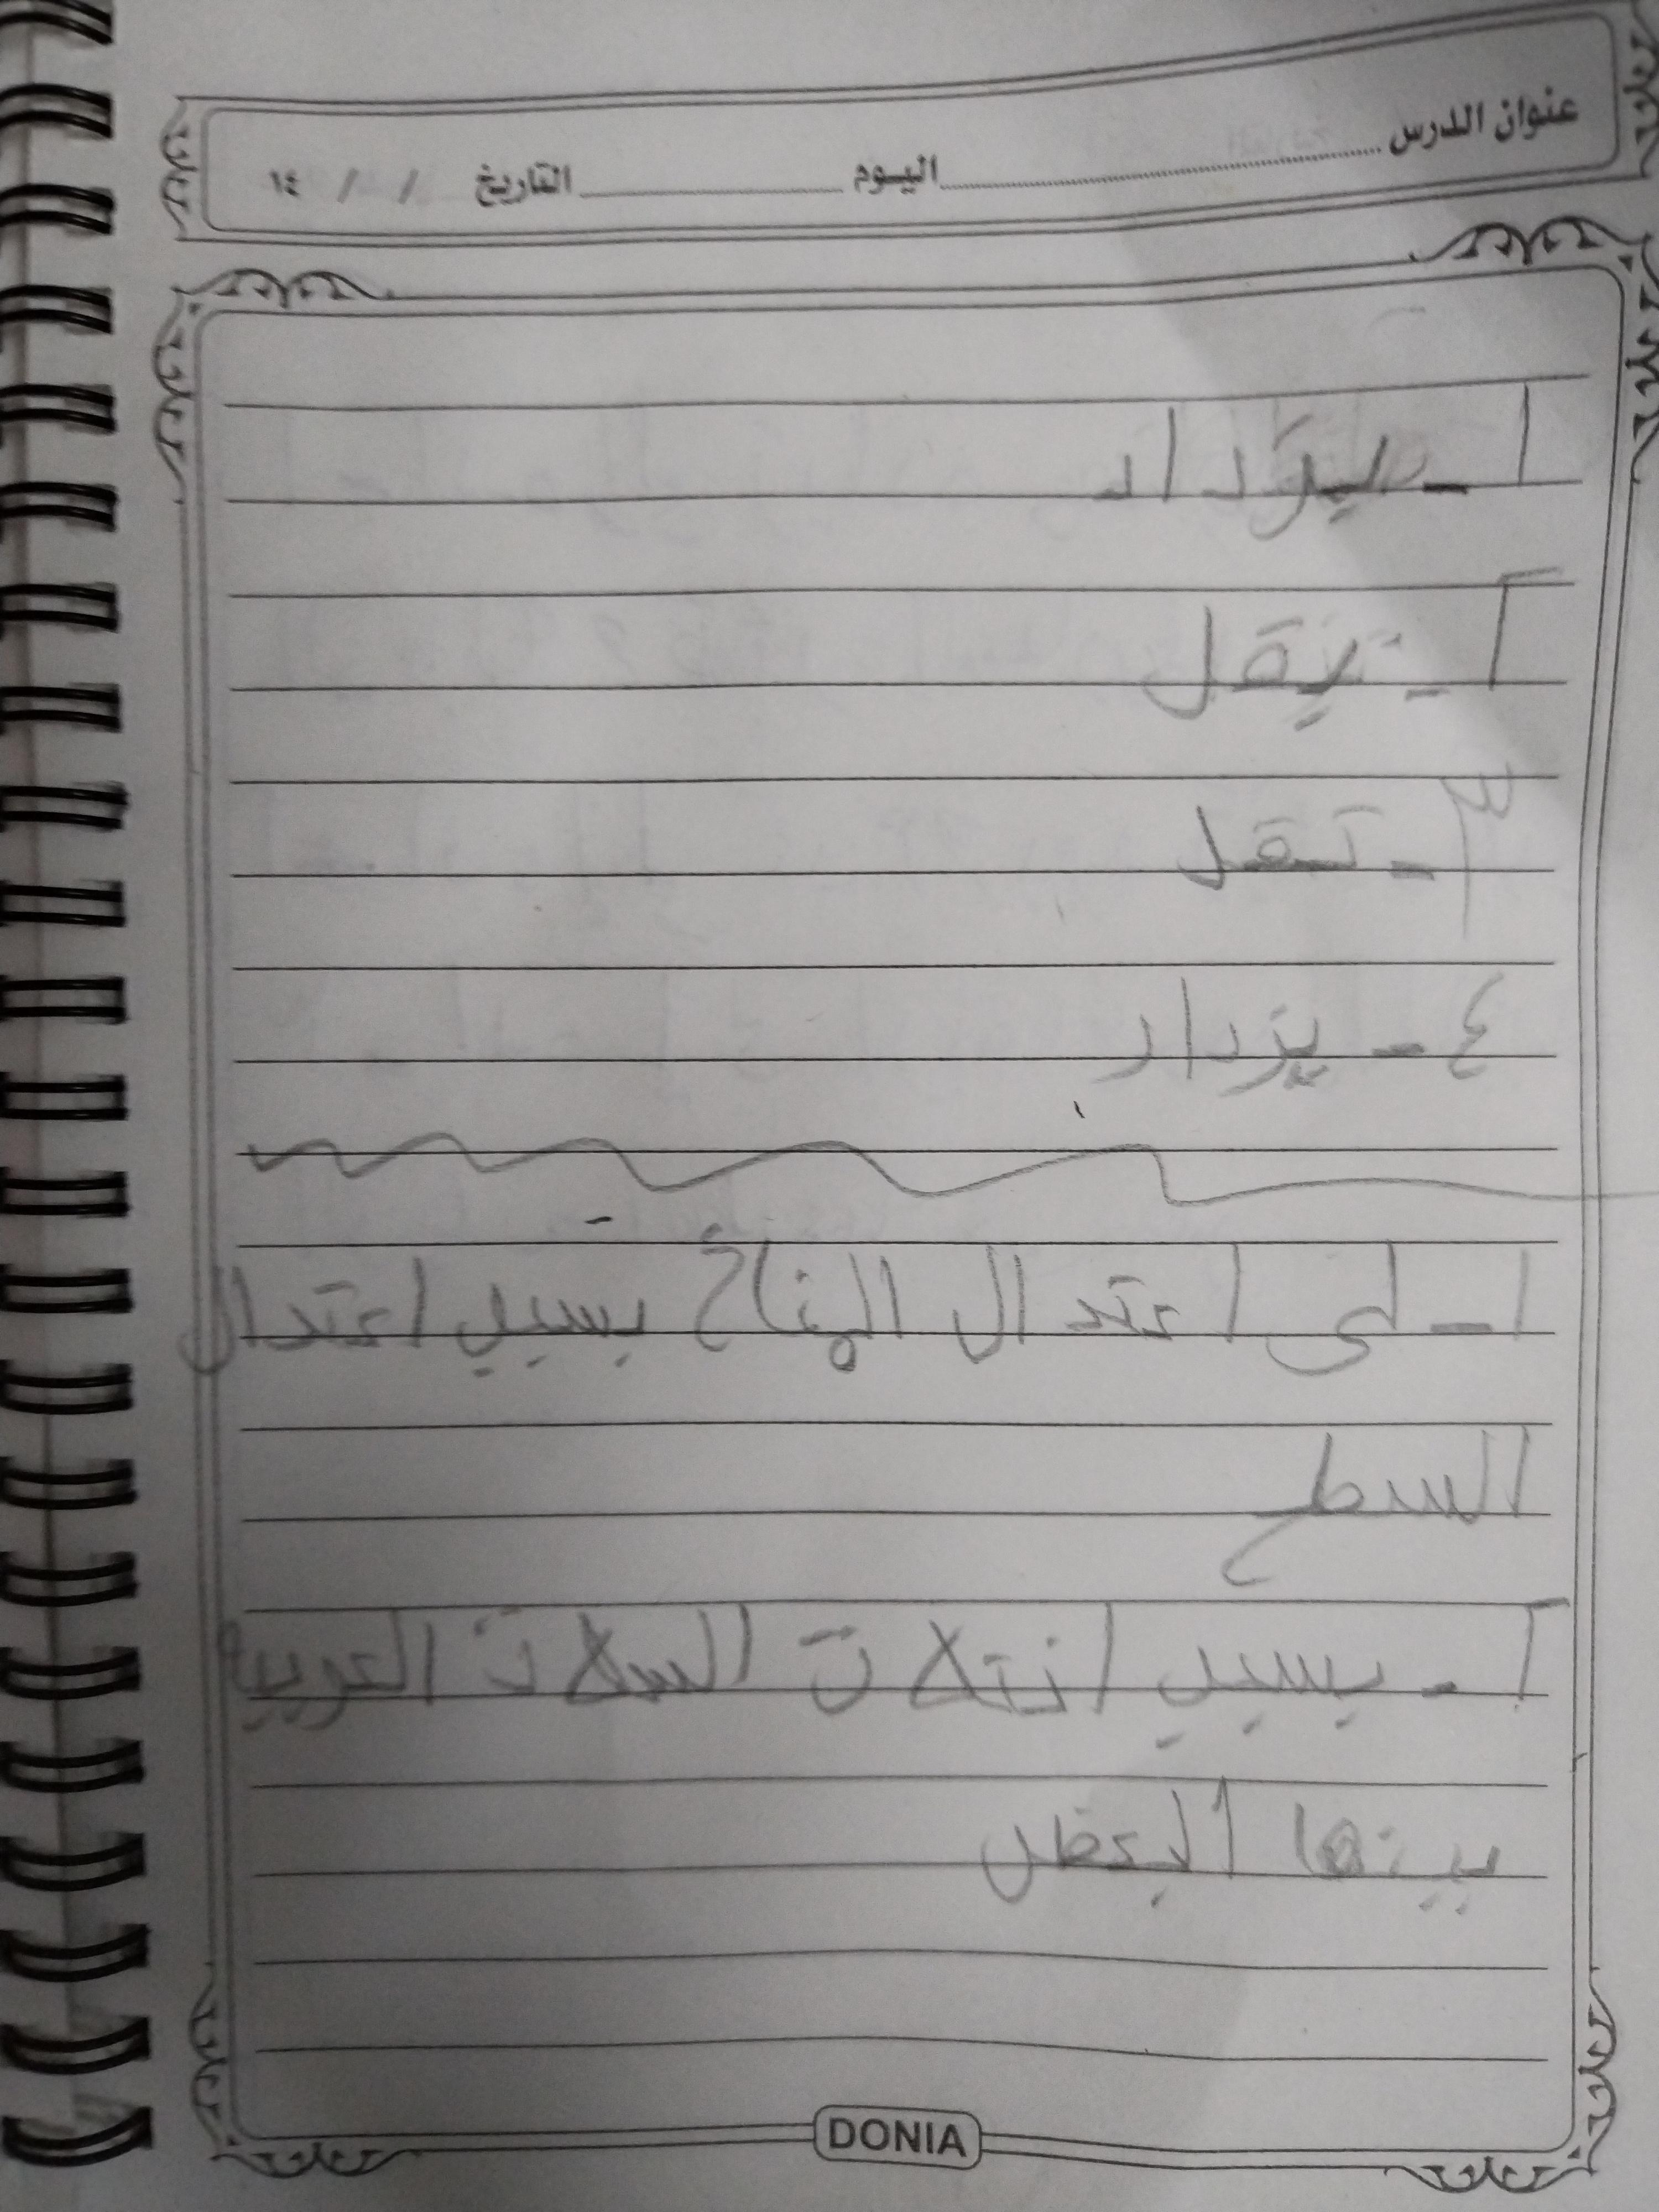 عنوان الدرس اليوم التاريخ / / ١٤
١ - يزداد
٢ - يقل
٣ - تقل
٤ - يزدار
١ - لى اعتدال المناخ بسبب اعتدال
السطح
٢ - بسبب انتلات السلات العربيه
بينها البعظ
DONIA